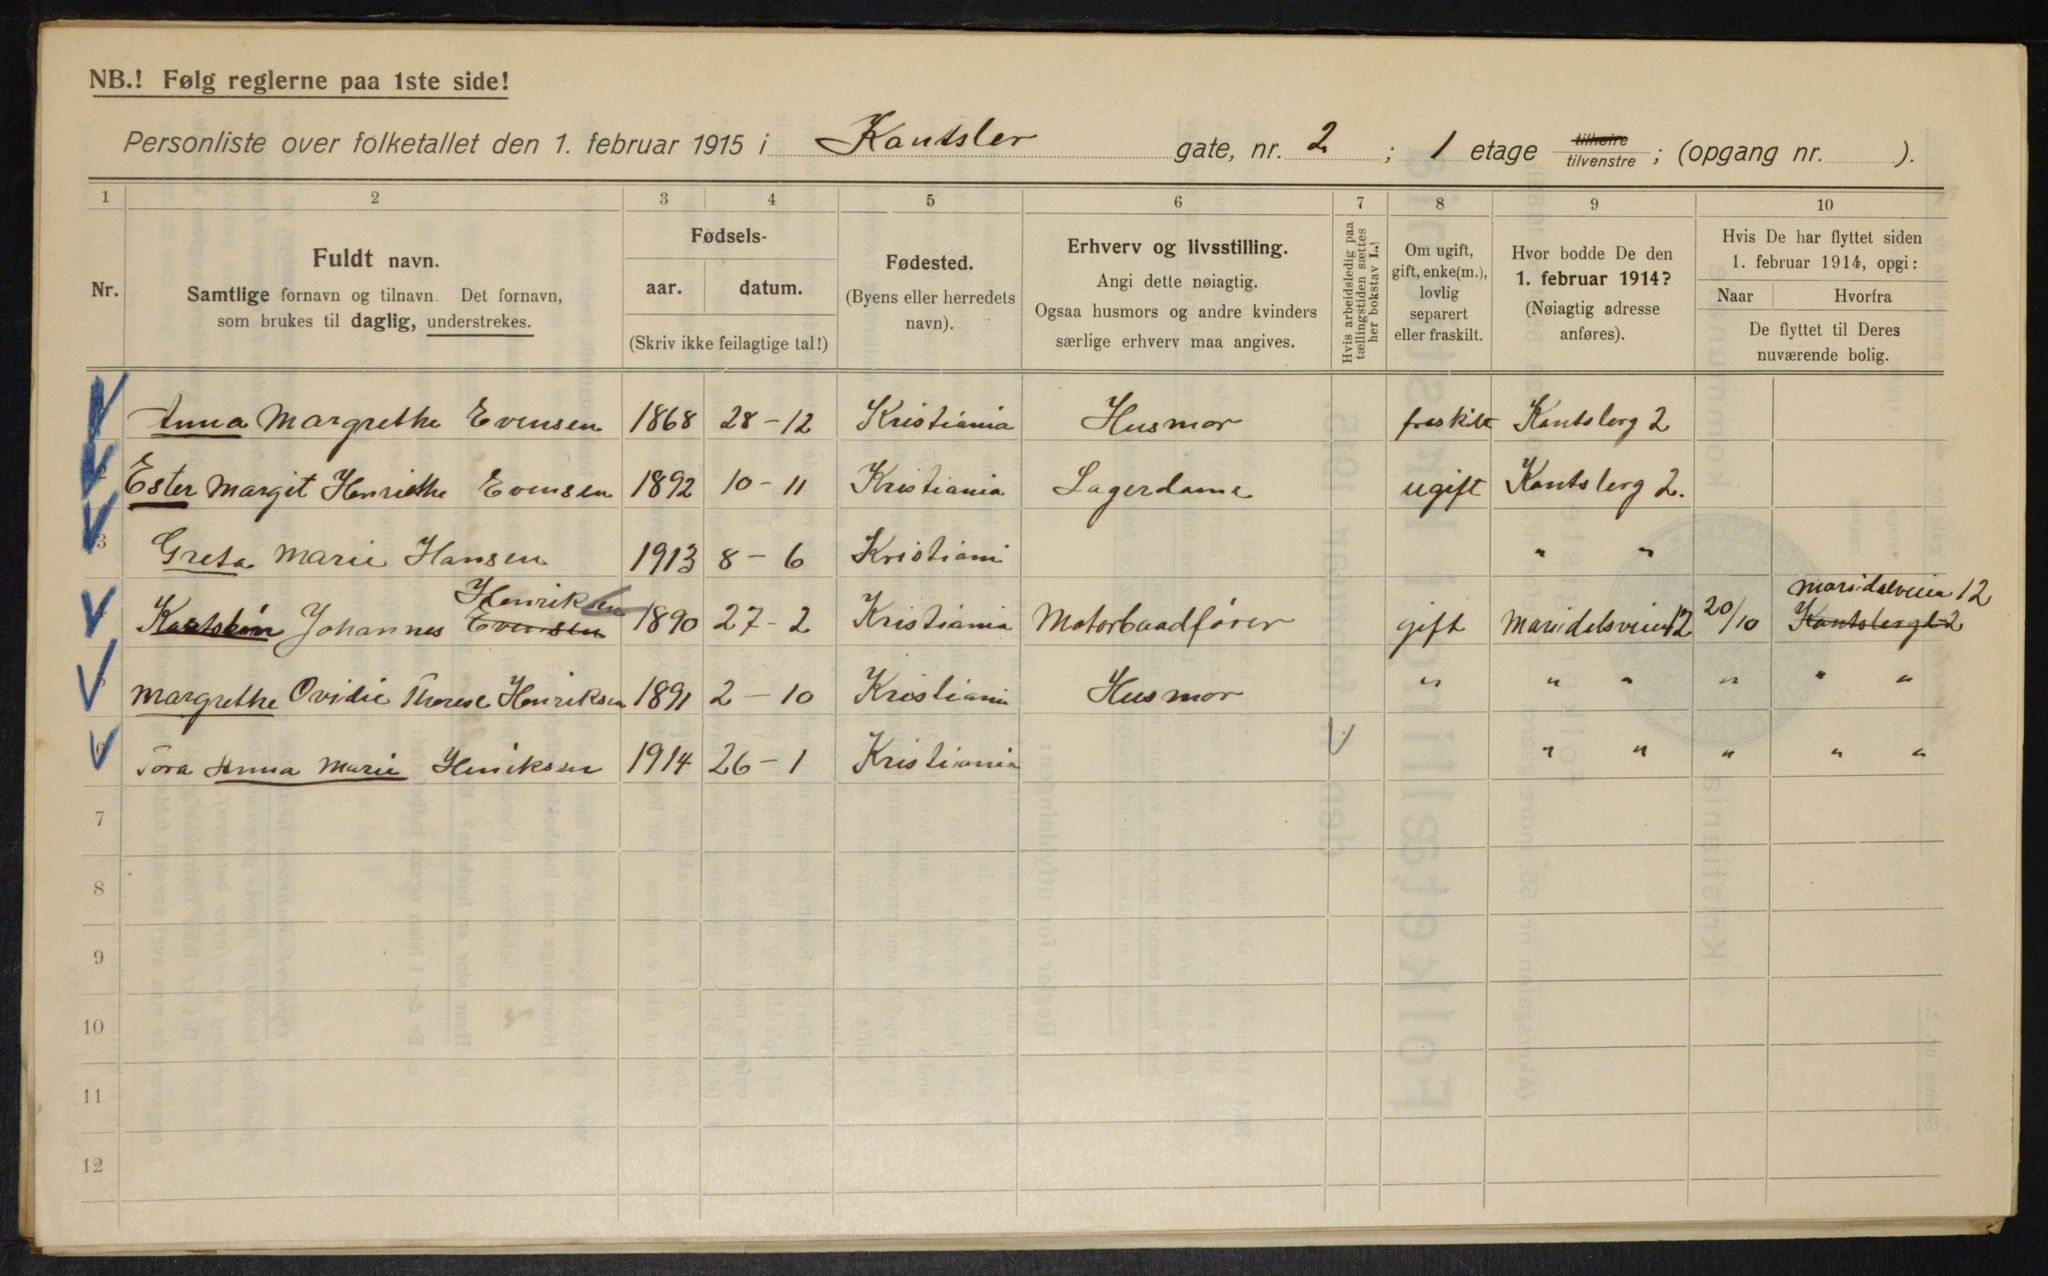 NB.! Følg reglerne paa 1ste side!
Personliste over folketallet den 1. februar 1915 i Kantsler gate, nr. 2 ; 1 etage tilhøire tilvenstre ; (opgang nr. ).
1 2 3 4 5 6 7 8 9 10
Nr.
Fuldt navn.
Samtlige fornavn og tilnavn. Det fornavn,
som brukes til daglig, understrekes.
Fødsels-
aar. datum.
(Skriv ikke feilagtige tal!)
Fødested.
(Byens eller herredets
navn).
Erhverv og livsstilling.
Angi dette nøiagtig.
Ogsaa husmors og andre kvinders
særlige erhverv maa angives.
Hvis arbeidsledig paa
tællingstiden sættes
her bokstav L.!
Om ugift,
gift, enke(m.),
lovlig
separert
eller fraskilt.
Hvor bodde De den
1. februar 1914?
(Nøiagtig adresse
anføres).
Hvis De har flyttet siden
1. februar 1914, opgi:
Naar Hvorfra
De flyttet til Deres
nuværende bolig.
Anna Margrethe Evensen 1868 28-12 Kristiania Husmor fraskilt Kantslerg 2
Ester Margit Henriethe Evensen 1892 10-11 Kristiania Lagerdame ugift Kantslerg 2.
3 Greta Marie Hansen 1913 8-6 Kristiani " "
Henriksen Marsidalveien 12
Johannes Evensen 1890 27-2 Kristiania Motorbaadfører gift Marsidelsveien 12 20/10 Kantslergt 2
Margrethe Ovidie Therese Henriksen 1891 2-10 Kristiani Husmor " " " " " "
6 Tora Anna Marie Henriksen 1914 26-1 Kristiania " " " " "
7
8
9
10
11
12